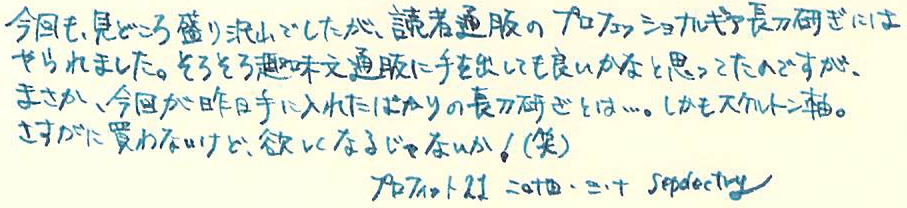 今回も、見どころ盛り沢山でしたが、読者通販のプロフェッショナルギア長刀研ぎには
やられました。そろそろ趣味文通販に手を出しても良いかなと思ってたのですが、
まさか、今回が昨日手に入れたばかりの長刀研ぎとは…。しかもスケルトン軸。
さすがに買わないけど、欲しくなるじゃないか!(笑)
プロフィット21